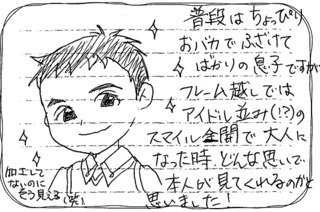 普段はちょっぴり
おバカでふざけて
ばかりの息子ですが
フレーム越しでは
アイドル並み(!?)の
スマイル全開で大人に
なった時、どんな思いで
本人が見てくれるのかと
思いました!
加工して
ないのに
そう見える(笑)